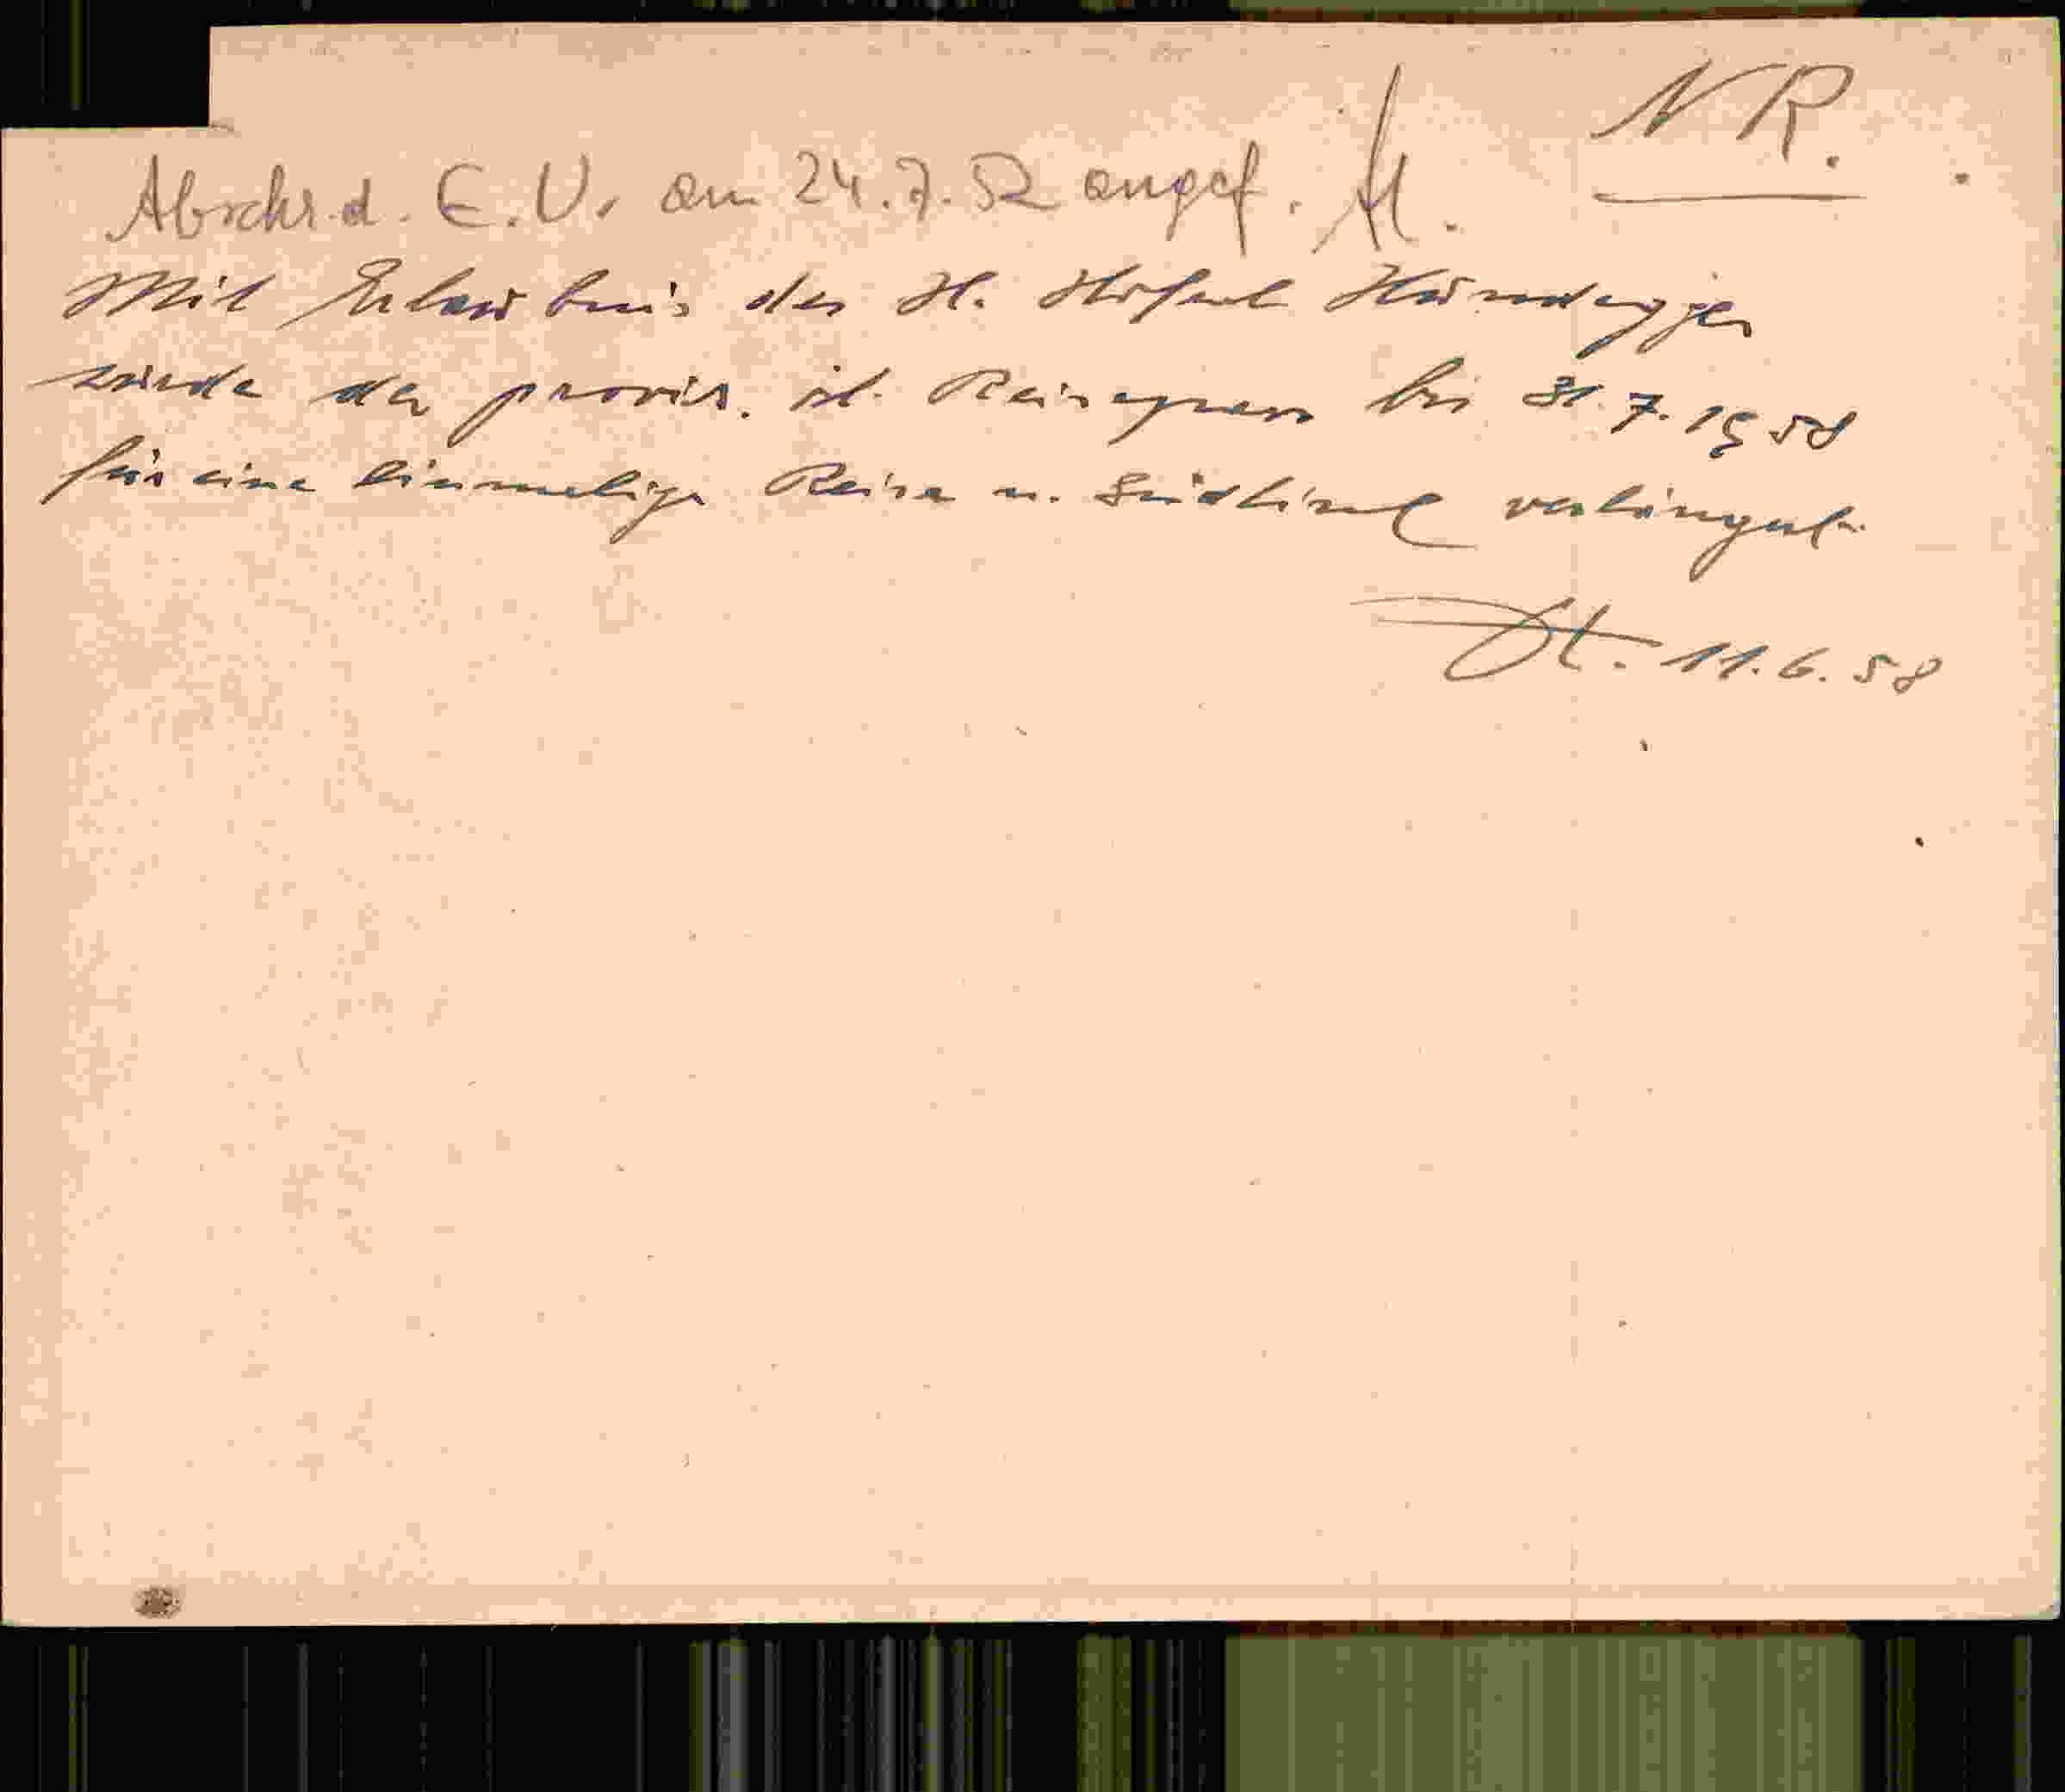 NR.
Abschr. d. E.V. am 24.7.52 angef.
Mit Erlaubnis des H. Hofrat
wurde der provis. it. Reisepass bis 31.7.1958
für eine einmalige Reise n. Südtirol verlängert.
11.6.58